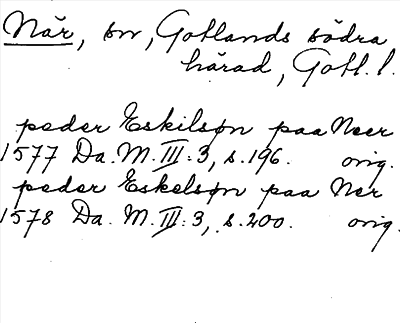 När, sn, Gotlands södra
härad, Gotl. l.
peder Eskilsøn paa Neer
1577 Da. M. III: 3, s. 196. orig.
peder Eskelsøn paa Ner
1578 Da. M. III: 3, s. 200. orig.